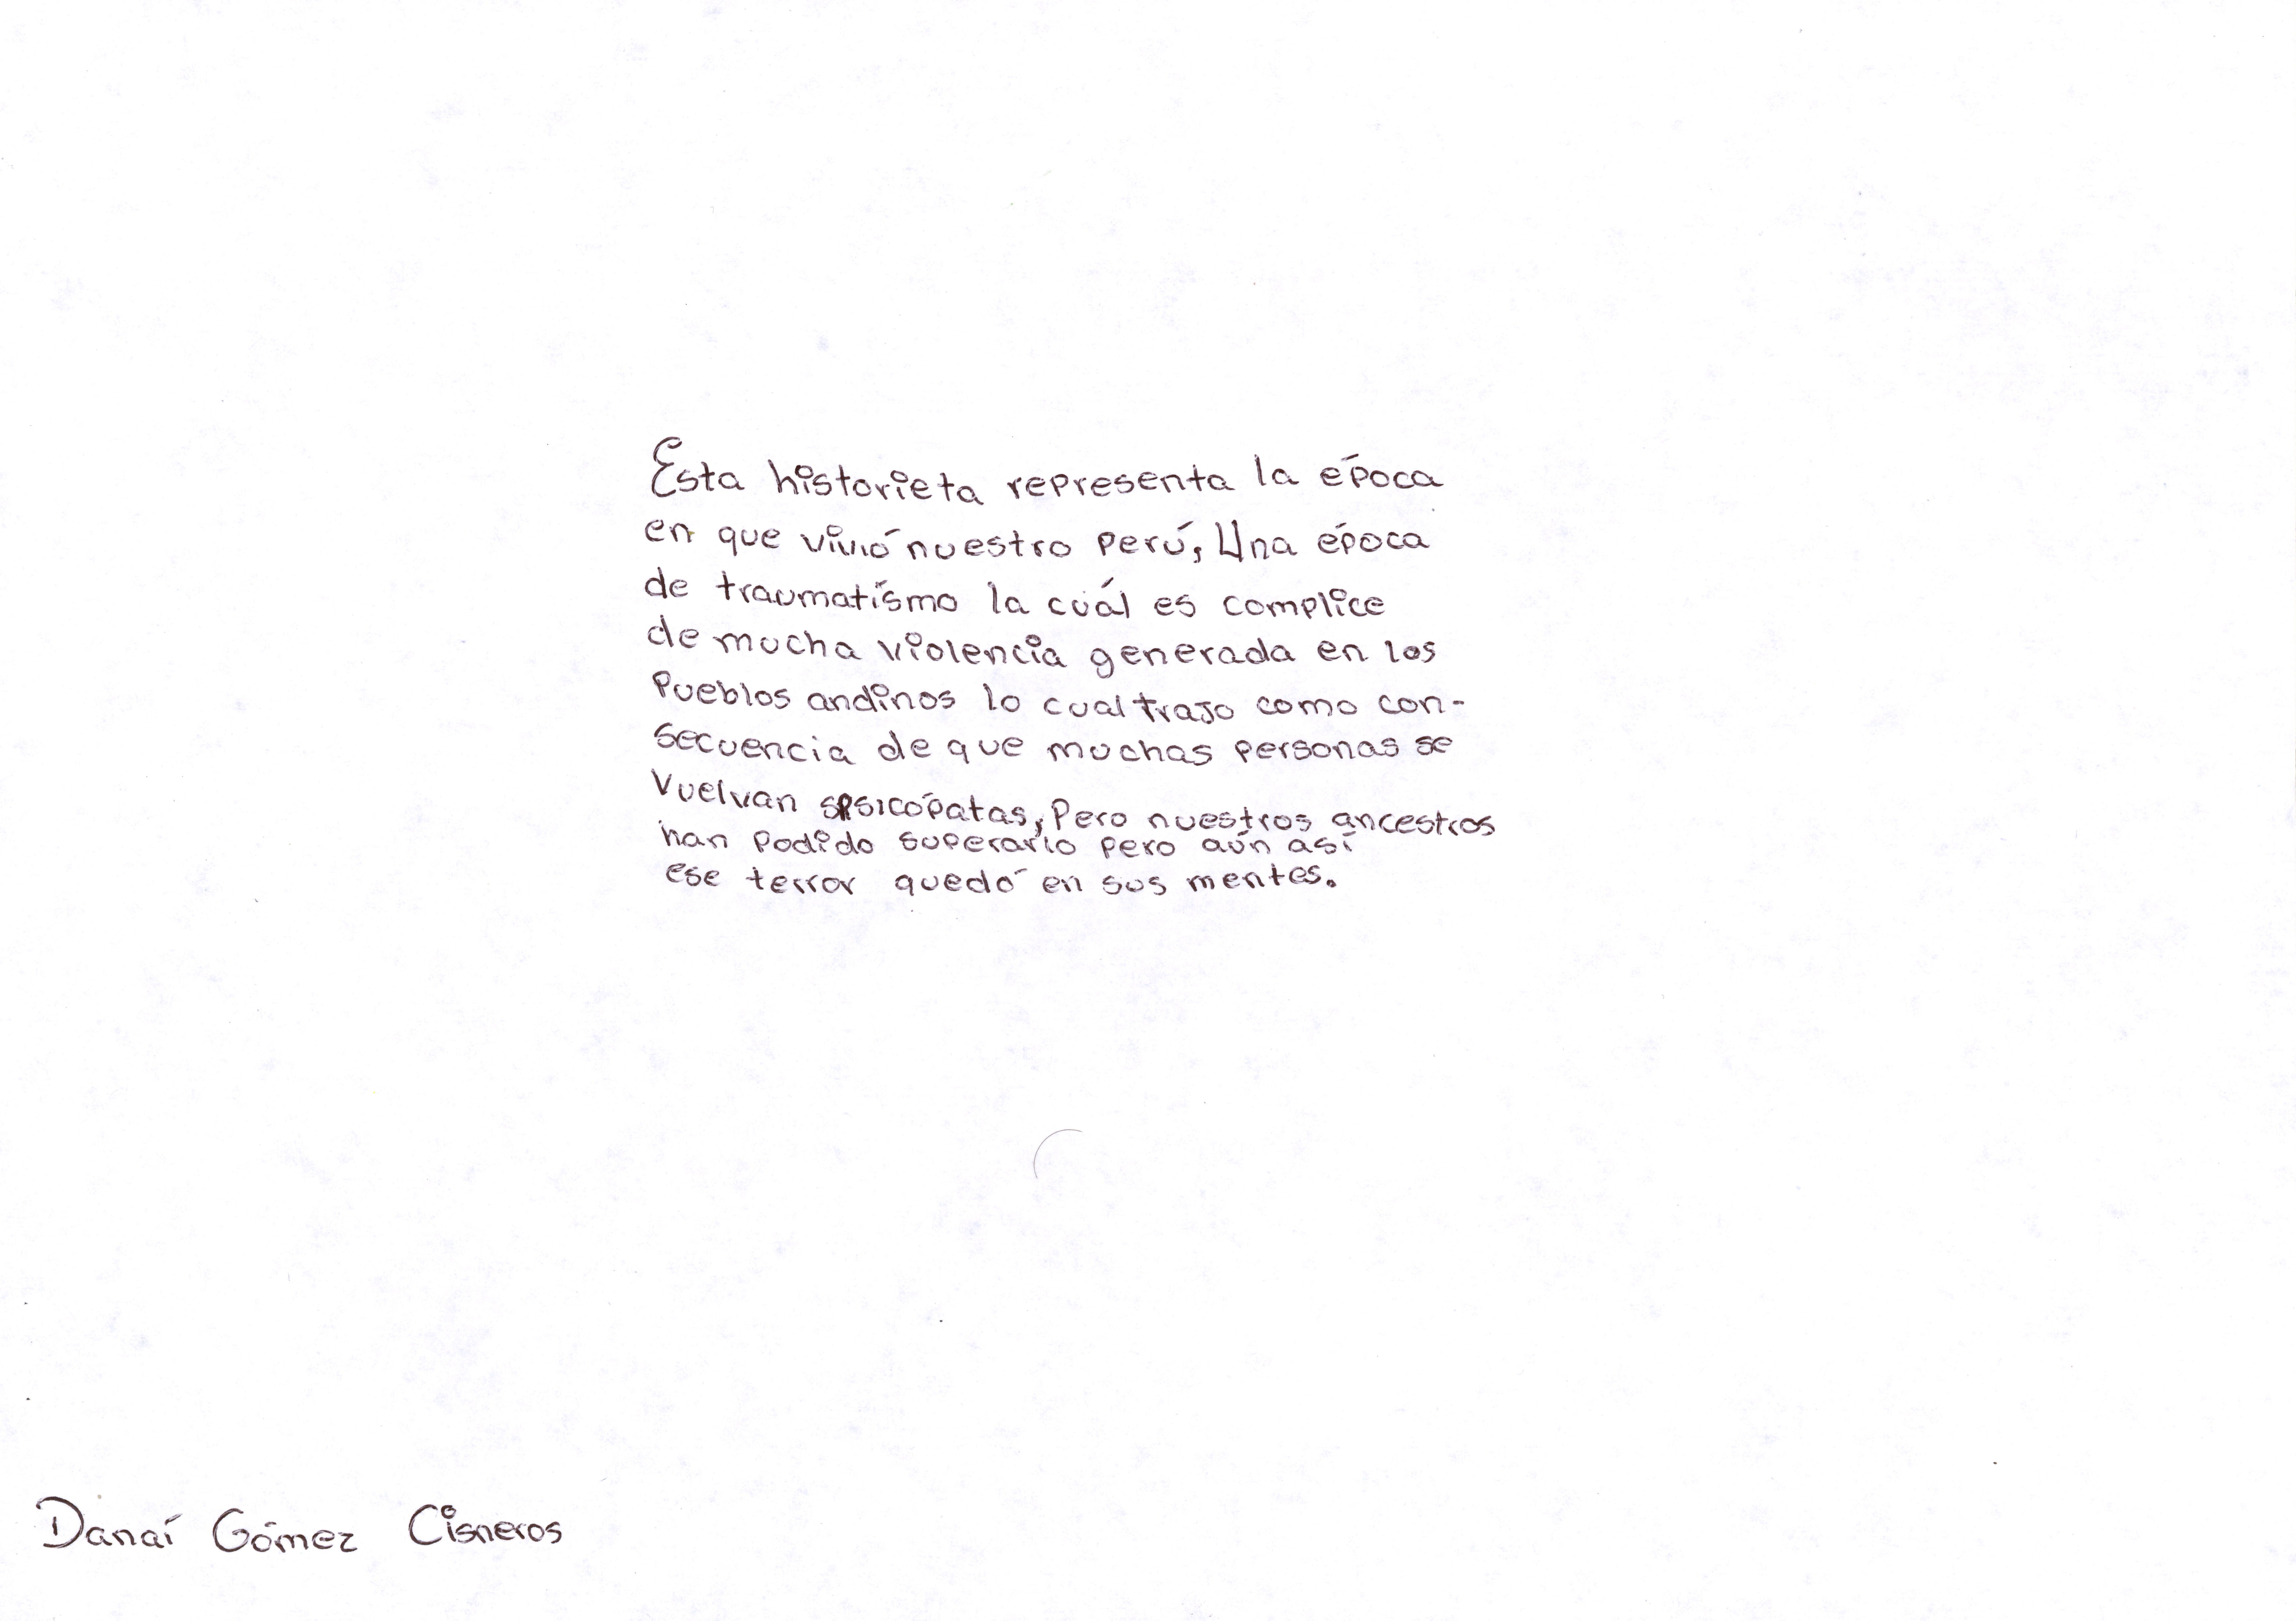 Esta historieta representa la época
en que vivió nuestro perú, Una época
de traumatísmo la cuál es complice
de mucha violencia generada en los
Pueblos andinos lo cual trajo como con-
secuencia de que muchas personas se
Vuelvan spsicópatas, Pero nuestros ancestros
han podido superarlo pero aún así
ese terror quedó en sus mentes.
Danaí Gómez Cisneros